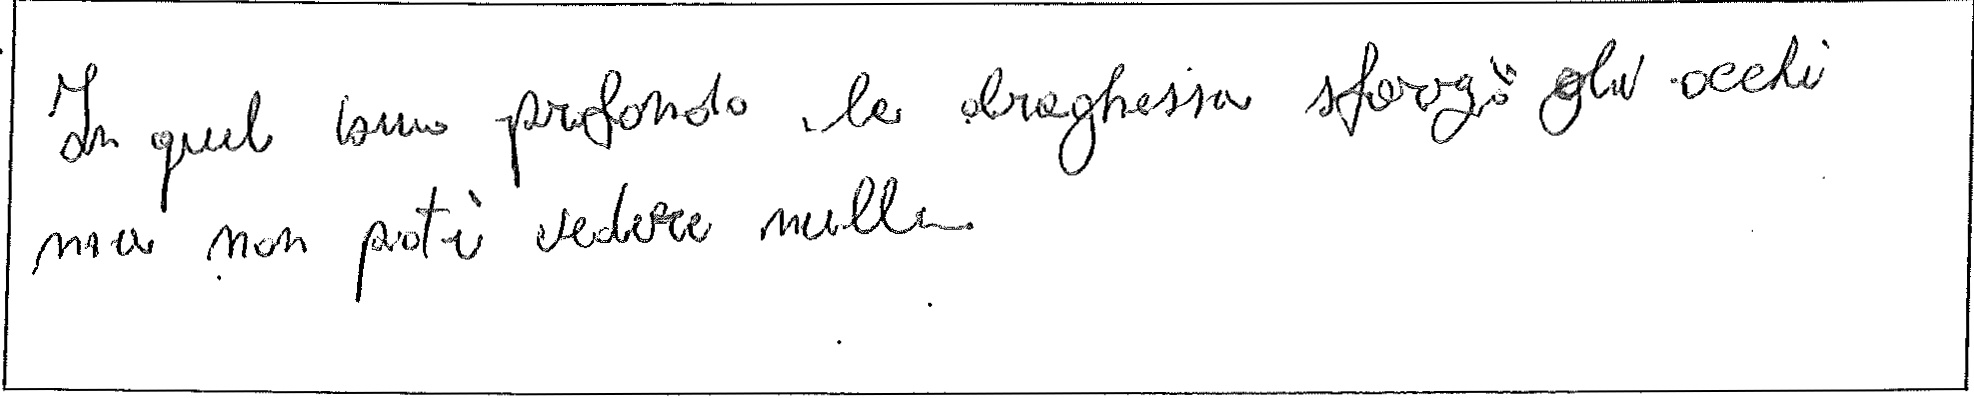 In quel buio profondo, la draghessa sforzò gli occhi
ma non potè vedere nulla.